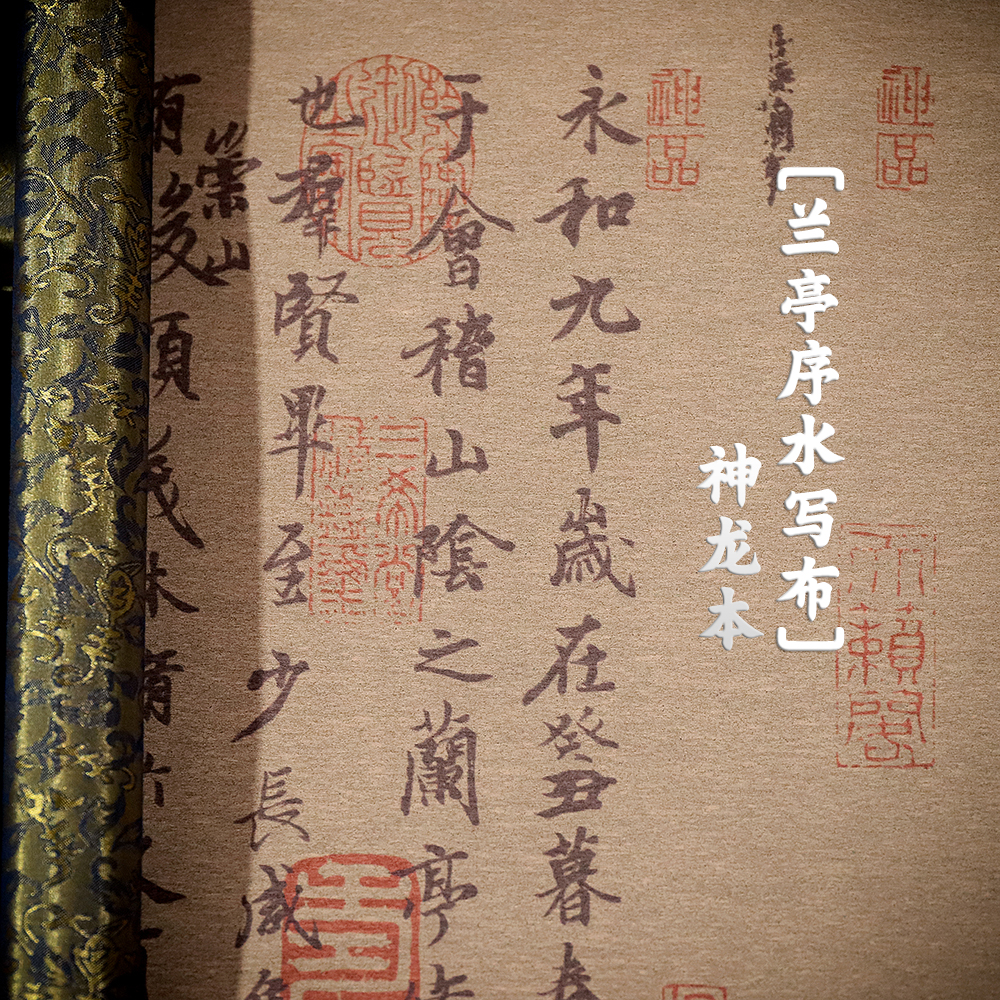 神品
[兰亭序水写布]
神龙本
神品
永和九年歲在癸丑暮春
于會稽山陰之蘭亭
三希堂
也羣賢畢至少長咸集
崇山
有峻領茂林脩竹又